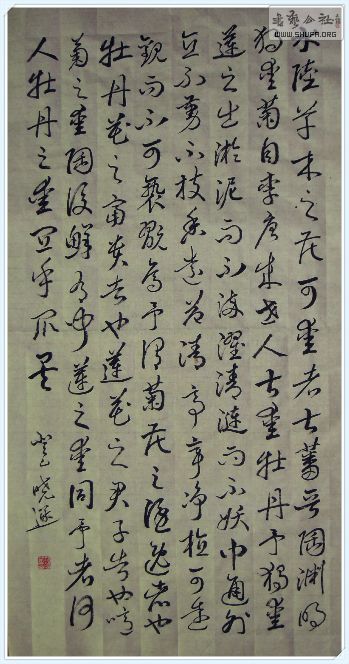 書藝公社
WWW.SHUFA.ORG
水陸草木之花可愛者甚蕃晉陶淵明
獨愛菊自李唐來世人甚愛牡丹予獨愛
蓮之出淤泥而不染濯清漣而不妖中通外
直不蔓不枝香遠益清亭亭净植可遠
觀而不可褻翫焉予謂菊花之隱逸者也
牡丹花之富貴者也蓮花之君子者也噫
菊之愛陶後鮮有聞蓮之愛同予者何
人牡丹之愛宜乎眾矣
曉